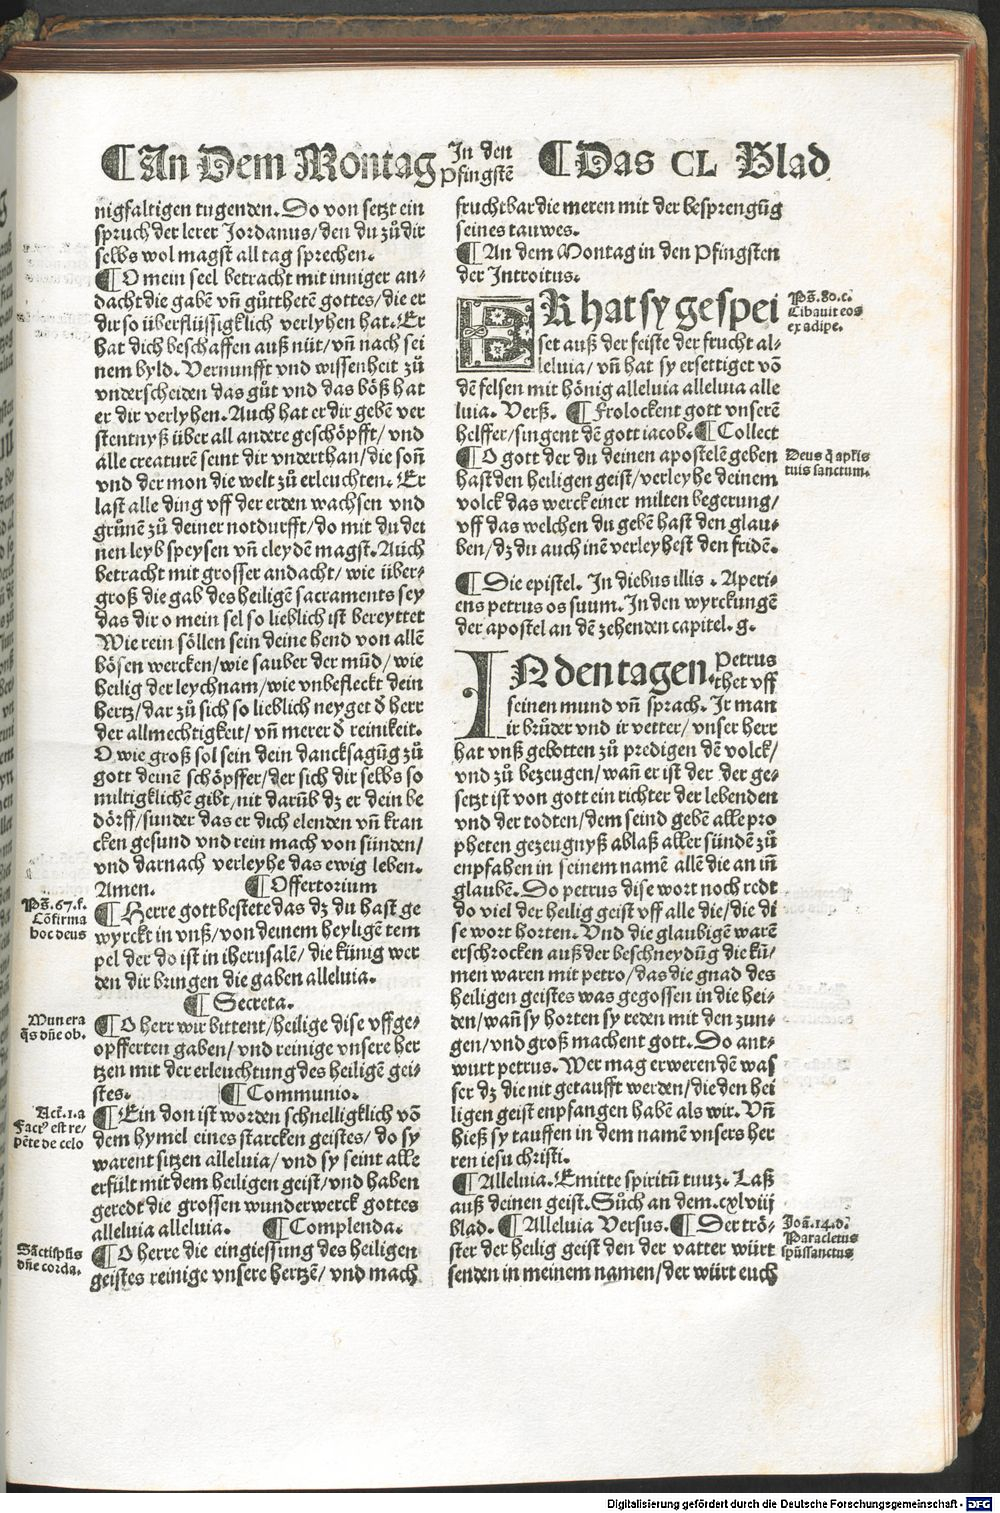 ¶An Dem Montag In den Pfingstē ¶Das CL Blad
nigfaltigen tugenden. Do von setzt ein
spruch der lerer Jordanus/den du zůdir
selbs wol magst all tag sprechen.
¶O mein seel betracht mit inniger an⸗
dacht die gabē vñ gütthetē gottes/die er
dir so überflüssigklich verlyhen hat. Er
hat dich beschaffen auß nüt/vñ nach sei
nem byld. Vernunfft vnd wissenheit zů
vnderscheiden das gůt vnd das böß hat
er dir verlyhen. Auch hat er dir gebē ver
stentnyß über all andere geschöpfft/vnd
alle creaturē seint dir vnderthan/die soñ
vnd der mon die welt zů erleuchten. Er
last alle ding vff der erden wachsen vnd
grůnē zů deiner notdurfft/do mit du dei
nen leyb speysen vñ cleydē magst. Auch
betracht mit grosser andacht/wie über⸗
groß die gab des heiligē sacraments sey
das dir o mein sel so lieblich ist bereyttet
Wie rein söllen sein deine hend von allē
bösen wercken/wie sauber der mūd/wie
heilig der leychnam/wie vnbefleckt dein
hertz/dar zů sich so lieblich neyget d̄ herr
der allmechtigkeit/vñ merer d̄ reinikeit.
O wie groß sol sein dein dancksagūg zů
gott deinē schöpffer/der sich dir selbs so
miltigklichē gibt/nit darūb dz er dein be
dörff/sunder das er dich elenden vñ kran
cken gesund vnd rein mach von sünden/
vnd darnach verleyhe das ewig leben.
Amen. ¶Offertorium
Ps̄. 67. f.
Cōfirma
hoc deus
¶Herre gott bestete das dz du hast ge
wyrckt in vnß/von deinem heyligē tem
pel der do ist in iherusalē/die künig wer
den dir bringen die gaben alleluia.
¶Secreta.
Munera
q̄s dñe ob.
¶O herr wir bittent/heilige dise vffge⸗
opfferten gaben/vnd reinige vnsere her
tzen mit der erleuchtung des heiligē gei⸗
stes. ¶Communio.
Act. 1. a
Factꝰ est re⸗
pēte de celo
¶Ein don ist worden schnelligklich vō
dem hymel eines starcken geistes/do sy
warent sitzen alleluia/vnd sy seint alle
erfült mit dem heiligen geist/vnd haben
geredt die grossen wunderwerck gottes
alleluia alleluia. ¶Complenda.
Sācti spūs
dñe corda.
¶O herre die eingiessung des heiligen
geistes reinige vnsere hertzē/vnd mach
fruchtbar die meren mit der besprengūg
seines tauwes.
¶An dem Montag in den Pfingsten
der Introitus.
ER hat sy gespei
Ps̄. 80. c.
Cibavit eos
ex adipe.
set auß der feiste der frucht al⸗
leluia/vñ hat sy ersettiget vō
dē felsen mit hönig alleluia alleluia alle
luia. Verß. ¶Frolockent gott vnserē
helffer/singent dē gott iacob. ¶Collect
¶O gott der du deinen apostelē geben
Deus q̄ aplis
tuis sanctum.
hast den heiligen geist/verleyhe deinem
volck das werck einer milten begerung/
vff das welchen du gebē hast den glau⸗
ben/dz du auch inē verleyhest den fridē.
¶Die epistel. In diebus illis. Aperi⸗
ens petrus os suum. In den wyrckungē
der apostel an dē zehenden capitel. g.
IN den tagen. Petrus
thet vff
seinen mund vñ sprach. Ir man
ir brůder vnd ir vetter/vnser herr
hat vnß gebotten zů predigen dē volck/
vnd zů bezeugen/wañ er ist der der ge⸗
setzt ist von gott ein richter der lebenden
vnd der todten/dem seind gebē alle pro
pheten gezeugnyß ablaß aller sündē zů
enpfahen in seinem namē allē die an iñ
glaubē. Do petrus dise wort noch redt
do viel der heilig geist vff alle die/die di
se wort horten. Vnd die glaubigē warē
erschrocken auß der beschneydūg die kū⸗
men waren mit petro/das die gnad des
heiligen geistes was gegossen in die hei⸗
den/wañ sy horten sy reden mit den zun⸗
gen/vnd groß machent gott. Do ant⸗
wurt petrus. Wer mag erweren dē was
ser dz die nit getaufft werden/die den hei
ligen geist enpfangen habē als wir. Vñ
hieß sy tauffen in dem namē vnsers her
ren iesu christi.
¶Alleluia. Emitte spiritū tuuz. Laß
auß deinen geist. Sůch an dem. cxlviij
blad. ¶Alleluia Versus. ¶Der trö⸗
Joā. 14. d.
Paracletus
spūssanctus
ster der heilig geist den der vatter würt
senden in meinem namen/der würt euch
Digitalisierung gefördert durch die Deutsche Forschungsgemeinschaft - DFG